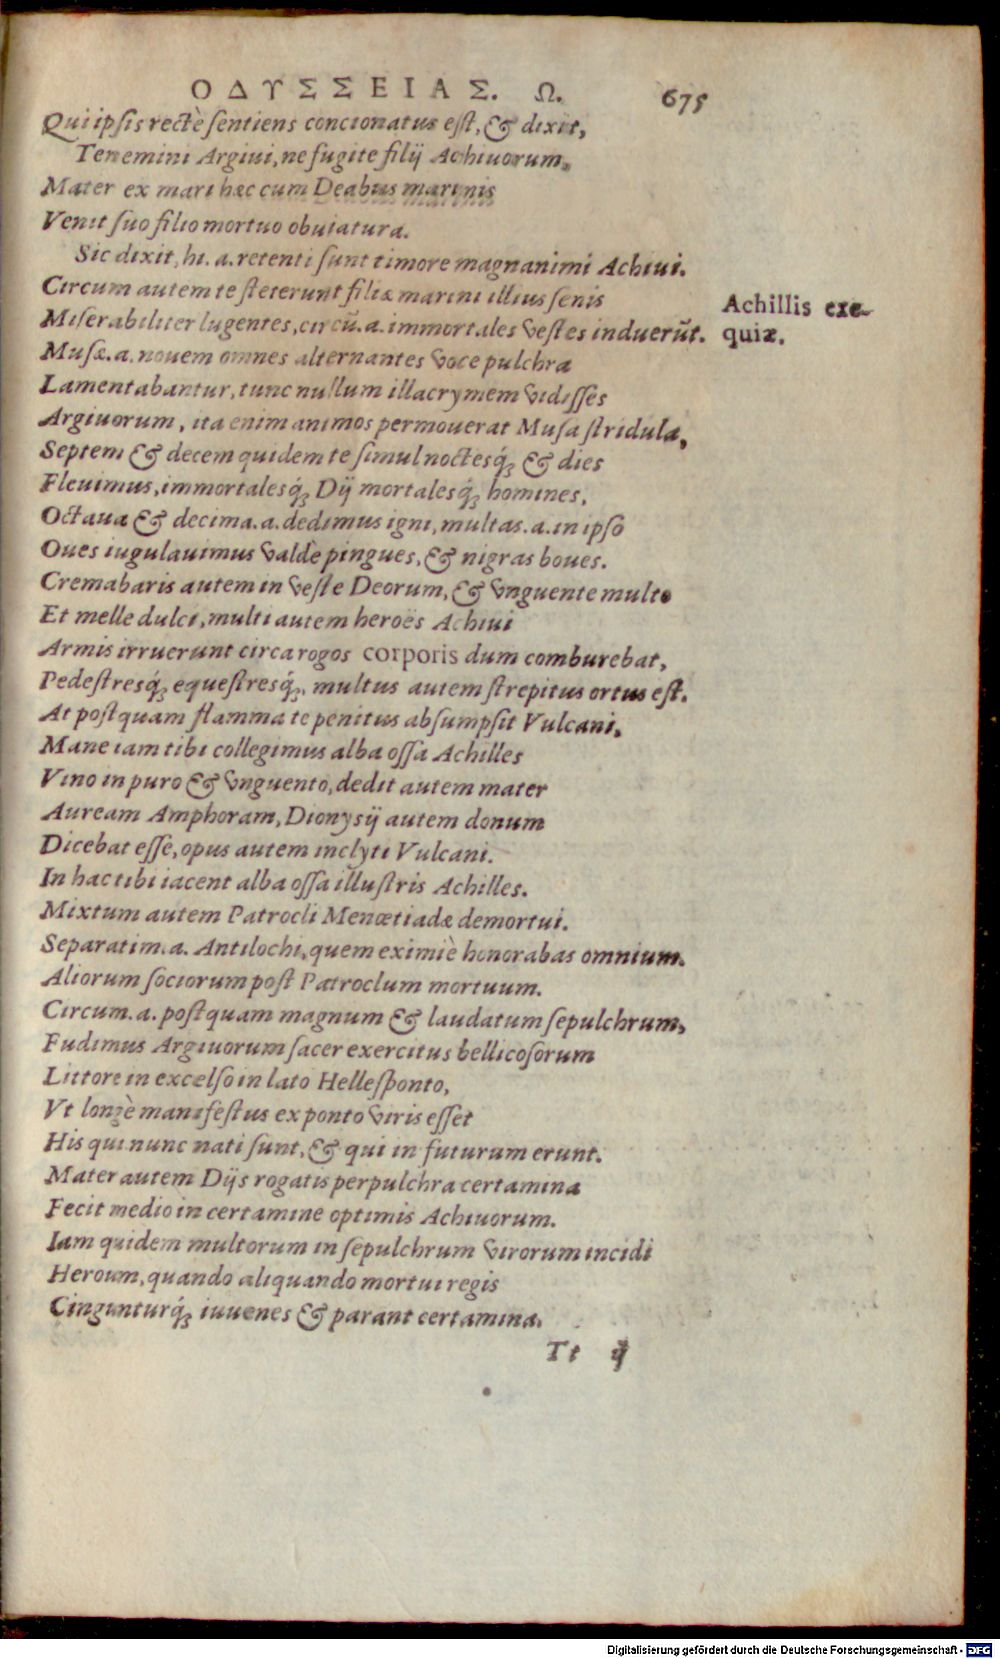 ΟΔΥΣΣΕΙΑΣ. Ω. 675
Qui ipsis rectè sentiens concionatus est, & dixit,
Tenemini Argiui, ne fugite filij Achiuorum,
Mater ex mari hæc cum Deabus marinis
Venit suo filio mortuo obuiatura.
Sic dixit, hi. a. retenti sunt timore magnanimi Achiui.
Circum autem te steterunt filiæ marini illius senis
Achillis exe-
Miserabiliter lugentes, circũ. a. immortales vestes induerũt.
quiæ.
Musæ. a. nouem omnes alternantes voce pulchra
Lamentabantur, tunc nullum illacrymem vidisses
Argiuorum, ita enim animos permouerat Musa stridula,
Septem & decem quidem te simul noctesq́; & dies
Fleuimus, immortalesq́; Dij mortalesq́; homines,
Octaua & decima. a. dedimus igni, multas. a. in ipso
Oues iugulauimus valdè pingues, & nigras boues.
Cremabaris autem in veste Deorum, & vnguente multo
Et melle dulci, multi autem heroës Achiui
Armis irruerunt circa rogos corporis dum comburebat,
Pedestresq́; equestresq́;, multus autem strepitus ortus est.
At postquam flamma te penitus absumpsit Vulcani,
Mane iam tibi collegimus alba ossa Achilles
Vino in puro & vnguento, dedit autem mater
Auream Amphoram, Dionysij autem donum
Dicebat esse, opus autem inclyti Vulcani.
In hac tibi iacent alba ossa illustris Achilles.
Mixtum autem Patrocli Menœtiadæ demortui.
Separatim. a. Antilochi, quem eximiè honorabas omnium.
Aliorum sociorum post Patroclum mortuum.
Circum. a. postquam magnum & laudatum sepulchrum,
Fudimus Argiuorum sacer exercitus bellicosorum
Littore in excelso in lato Hellesponto,
Vt longè manifestus ex ponto viris esset
His qui nunc nati sunt, & qui in futurum erunt.
Mater autem Dijs rogatis perpulchra certamina
Fecit medio in certamine optimis Achiuorum.
Iam quidem multorum in sepulchrum virorum incidi
Heroum, quando aliquando mortui regis
Cingunturq́; iuuenes & parant certamina.
Tt ij
Digitalisierung gefördert durch die Deutsche Forschungsgemeinschaft - DFG